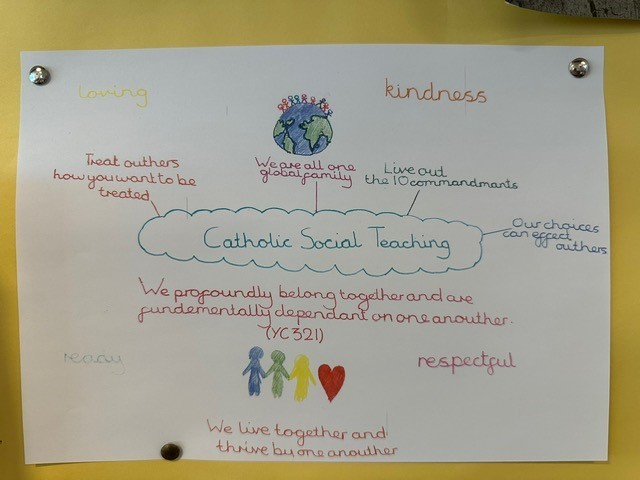 loving
kindness
Treat outhers
how you want to be
treated
We are all one
global family
Live out
the 10 commandmants
Our choices
can effect
outhers
Catholic Social Teaching
We profoundly belong together and are
fundementally dependant on one anouther.
(YC 321)
ready
respectful
We live together and
thrive by one anouther